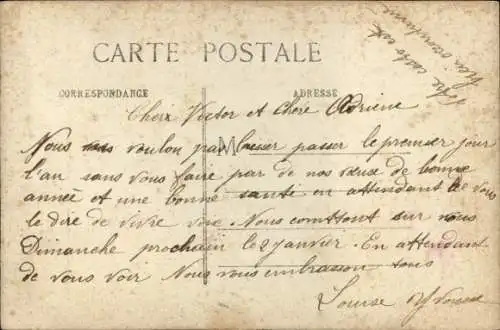 CARTE POSTALE
CORRESPONDANCE
ADRESSE
Cheix Victor et Chere Adriene
Nous voulon pas laisser passer le premier jour
l'an sans vous faire par de nos vœux de bonne
année et une bonne santé en attendant de vous
le dire de vive voie Nous comttont sur vous
Dimanche prochain le 2 janvier. En attendant
de vous voir Nous vous embrasson tous
Louise Yvonne